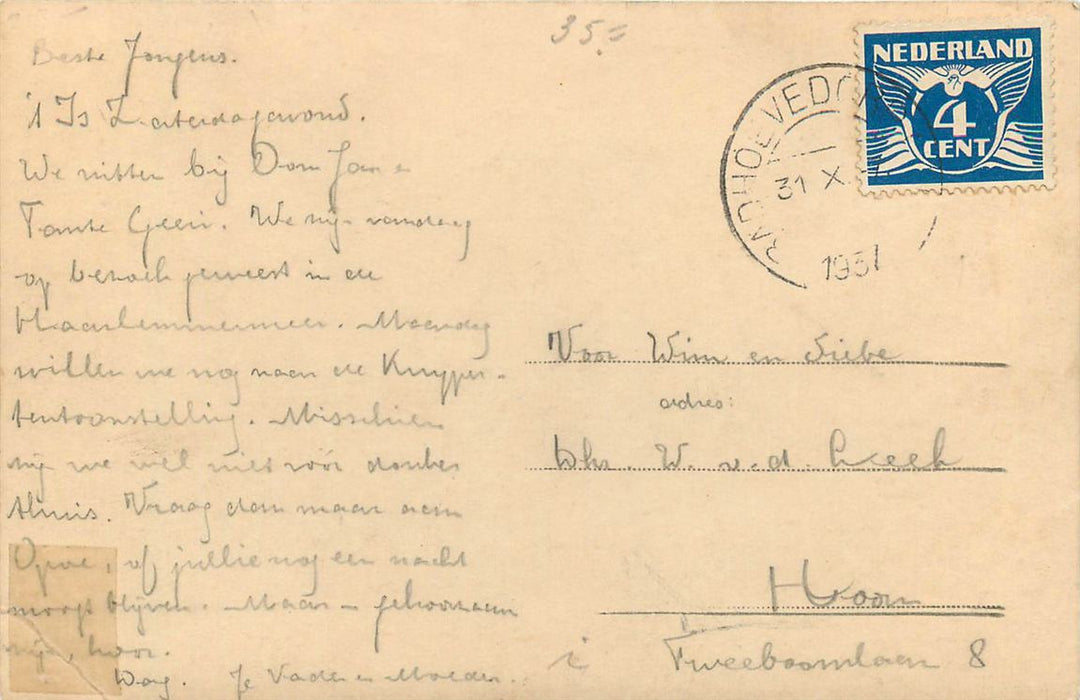 35.=
Beste Jongens.
't Is Zaterdagavond.
We zitten bij Oom Jan e
Tante Geeri. We zijn vandaag
op bezoek geweest in de
Haarlemmermeer. Maandag
willen we nog naar de Kuyper-
tentoonstelling. Misschien
zijn we wel niet vóór donker
thuis. Vraag dan maar aan
Opoe, of jullie nog een nacht
moogt blijven. Maar gehoorzaam
zijn, hoor.
Dag. Je Vader en Moeder.
NEDERLAND
4
CENT
BADHOEVEDO
31 X
1937
Voor Wim en Siebe
adres:
Dhr. W. v. d. Leek
Hoorn
Tweeboomlaan 8